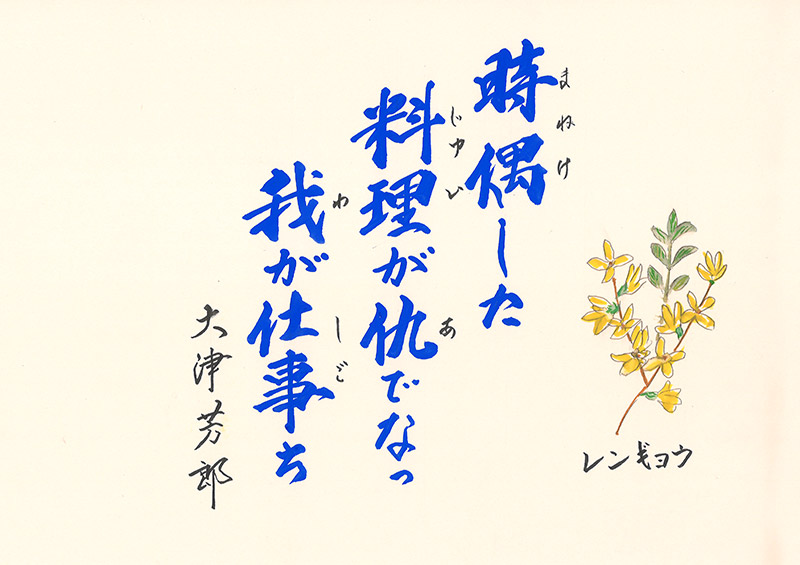 時偶した
料理が仇でなっ
あ
我が仕事ち
わ しご
大津芳郎
レンギョウ